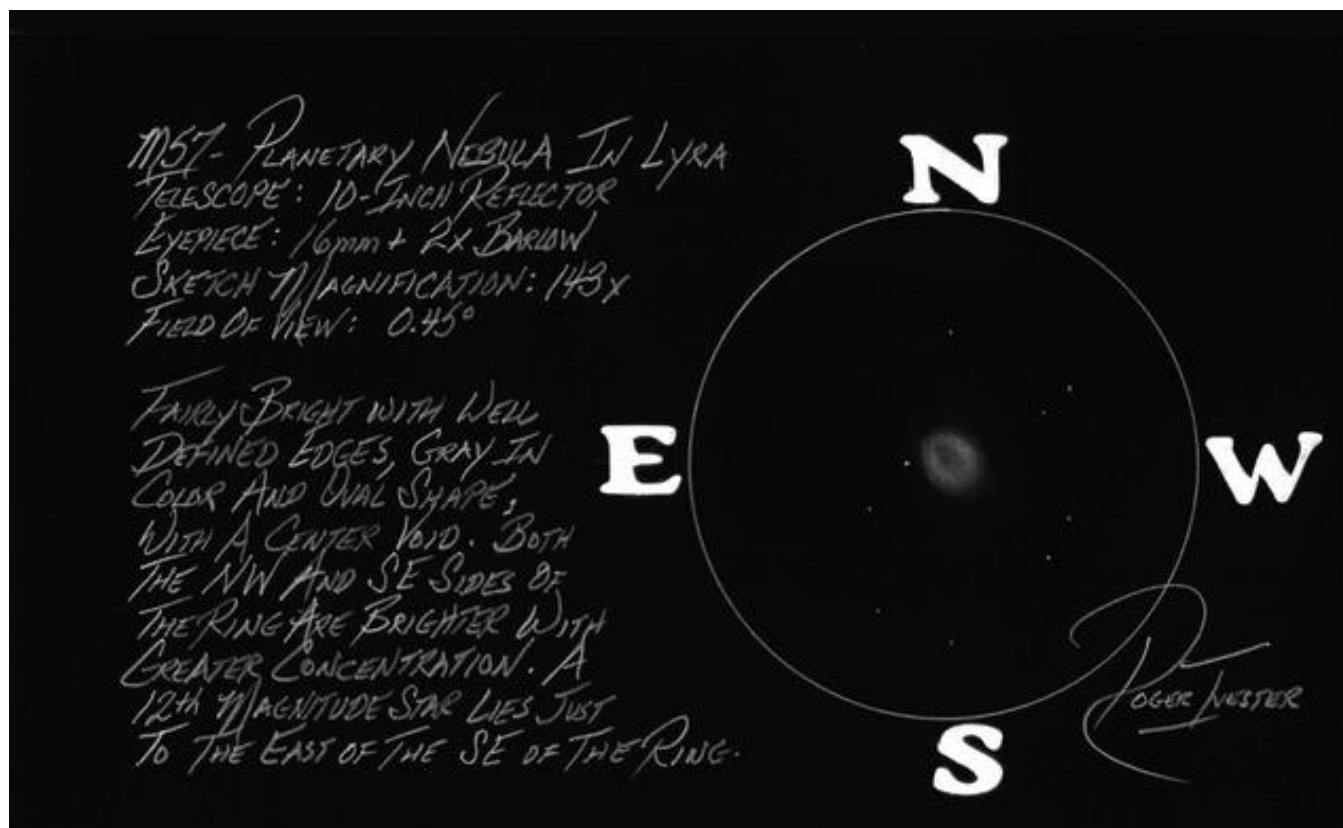 M57- PLANETARY NEBULA IN LYRA
TELESCOPE: 10-INCH REFLECTOR
EYEPIECE: 16mm + 2X BARLOW
SKETCH MAGNIFICATION: 143x
FIELD OF VIEW: 0.45°
FAIRLY BRIGHT WITH WELL
DEFINED EDGES, GRAY IN
COLOR AND OVAL SHAPE,
WITH A CENTER VOID. BOTH
THE NW AND SE SIDES OF
THE RING ARE BRIGHTER WITH
GREATER CONCENTRATION. A
12th MAGNITUDE STAR LIES JUST
TO THE EAST OF THE SE OF THE RING.
N
E
W
S
ROGER IVESTER